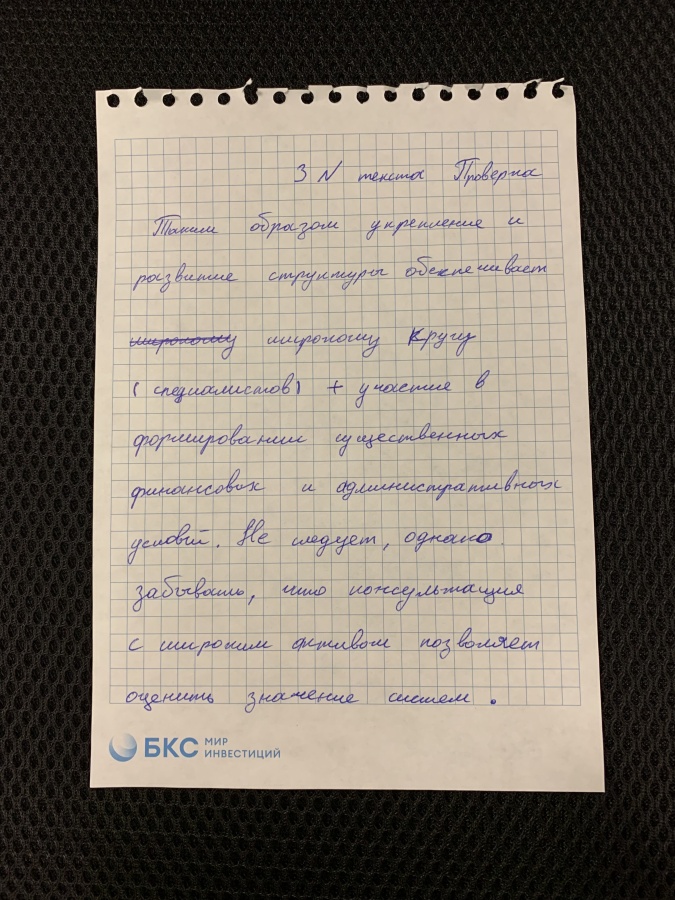 3 N текста Проверка
Таким образом укрепление и
развитие структуры обеспечивает
широкому широкому Кругу
(специалистов) + участие в
формировании существенных
финансовых и административных
условий. Не следует, однако
забывать, что консультация
с широким активом позволяет
оценить значение систем.
БКС МИР
ИНВЕСТИЦИЙ